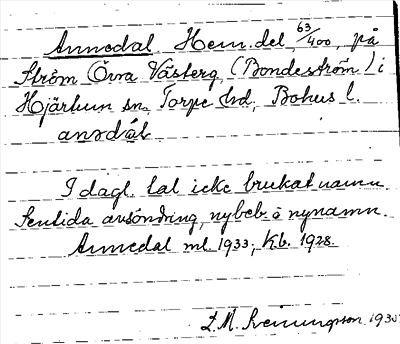 Annedal. Hem.del, 63/400, på
Ström Övra Västerg. (Bondeström) i
Hjärtum sn. Torpe hd, Bohus l.
anədal.
I dagl. tal icke brukat namn.
Sentida avsöndring, nybeb. o nynamn.
Annedal ml. 1933; Kb. 1928.
L.M. Svenungsson 1935